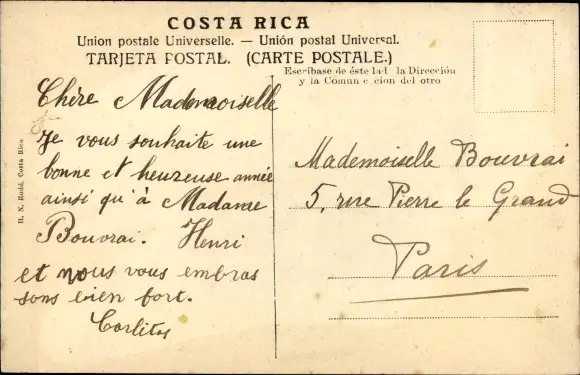 COSTA RICA
Union postale Universelle. — Unión postal Universal.
TARJETA POSTAL. (CARTE POSTALE.)
Escríbase de éste lad la Dirección
y la Comun c cion del otro
Chère Mademoiselle
Je vous souhaite une
bonne et heureuse année
ainsi qu'à Madame
Bouvrai. Henri
et nous vous embras
sons bien fort.
Carlitos
Mademoiselle Bouvrai
5, rue Pierre le Grand
Paris
H. N. Rudd, Costa Rica